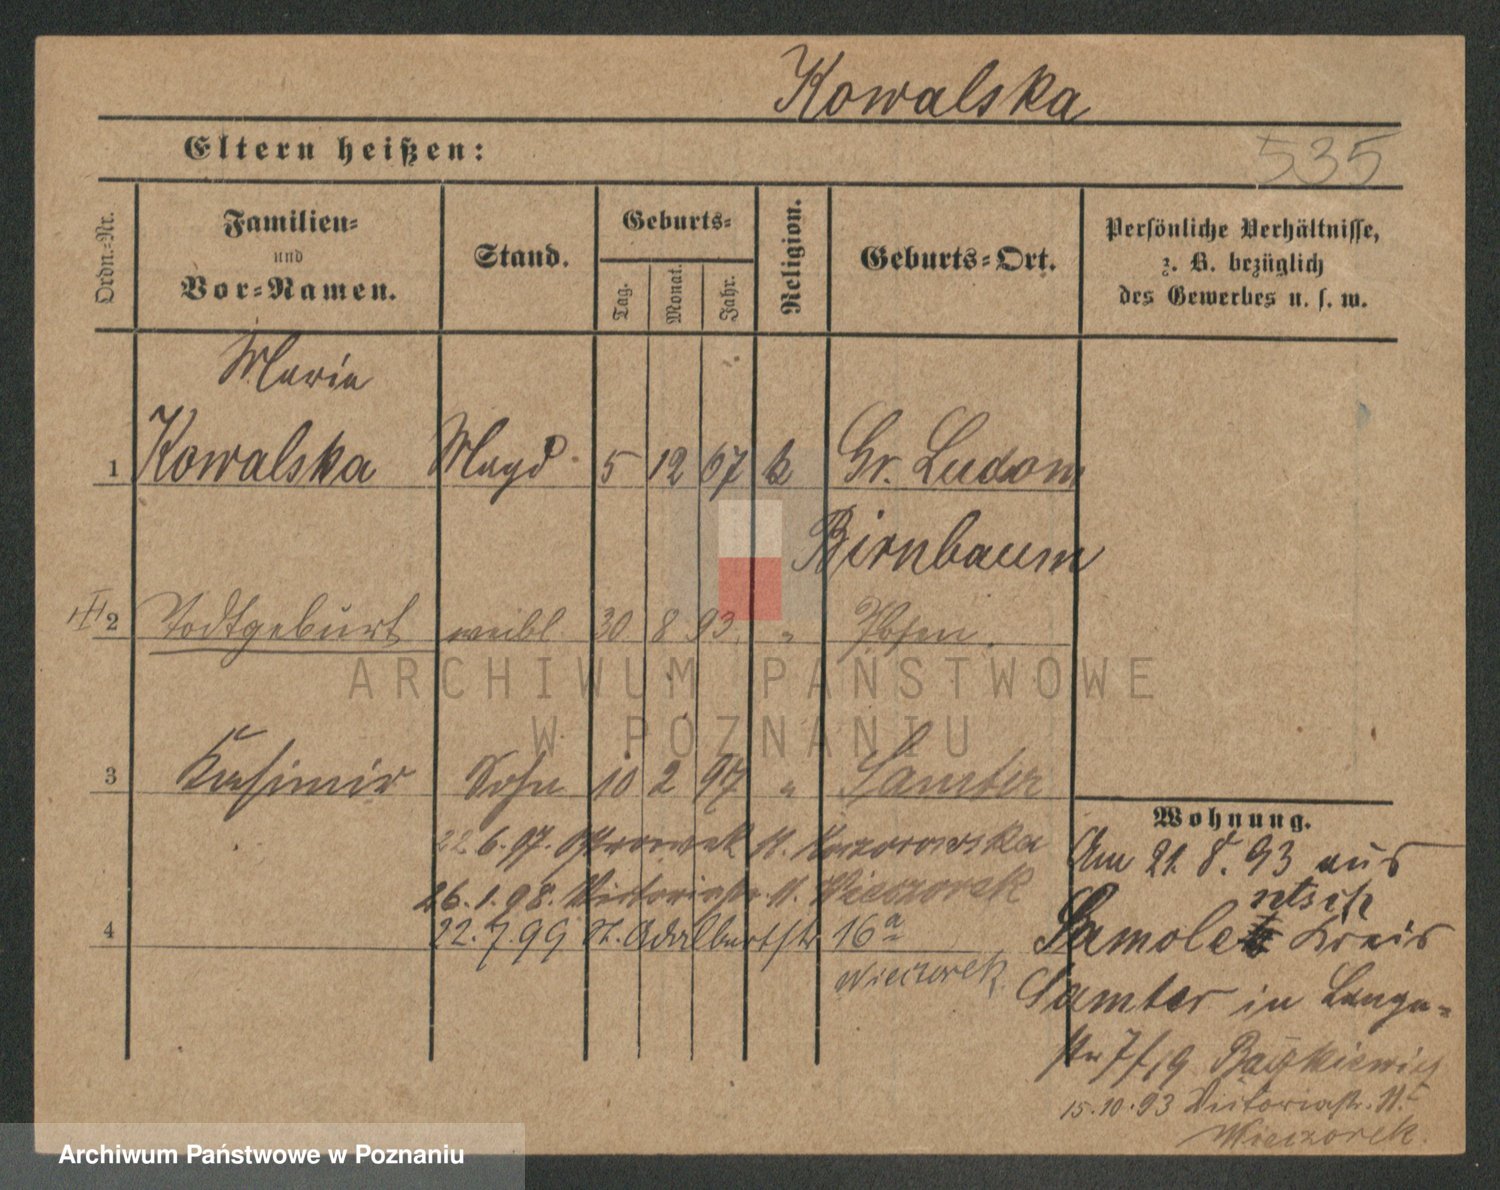 Kowalska
Eltern heißen:
535
Ordn.-Nr.
Familien-
und
Vor-Namen.
Stand.
Geburts-
Tag.
Monat.
Jahr.
Religion.
Geburts-Ort.
Persönliche Verhältnisse,
z. B. bezüglich
des Gewerbes u. s. w.
Maria
1 Kowalska Magd 5 12 67 k Gr. Ludom
Birnbaum
2 Todtgeburt weibl. 30 8 93. " Posen.
ARCHIWUM PAŃSTWOWE
W POZNANIU
3 Kasimir Sohn 10 2 97 " Samter
22.6.97.
26.1.98. Victoriastr. 11. Wieczorek
4 22.7.99 St. Adalbertstr. 16a
Wieczorek
Wohnung.
Am 21.8.93 aus
Kreis
Samter in Lange-
str
15.10.93 Victoriastr. 11.
Wieczorek.
Archiwum Państwowe w Poznaniu